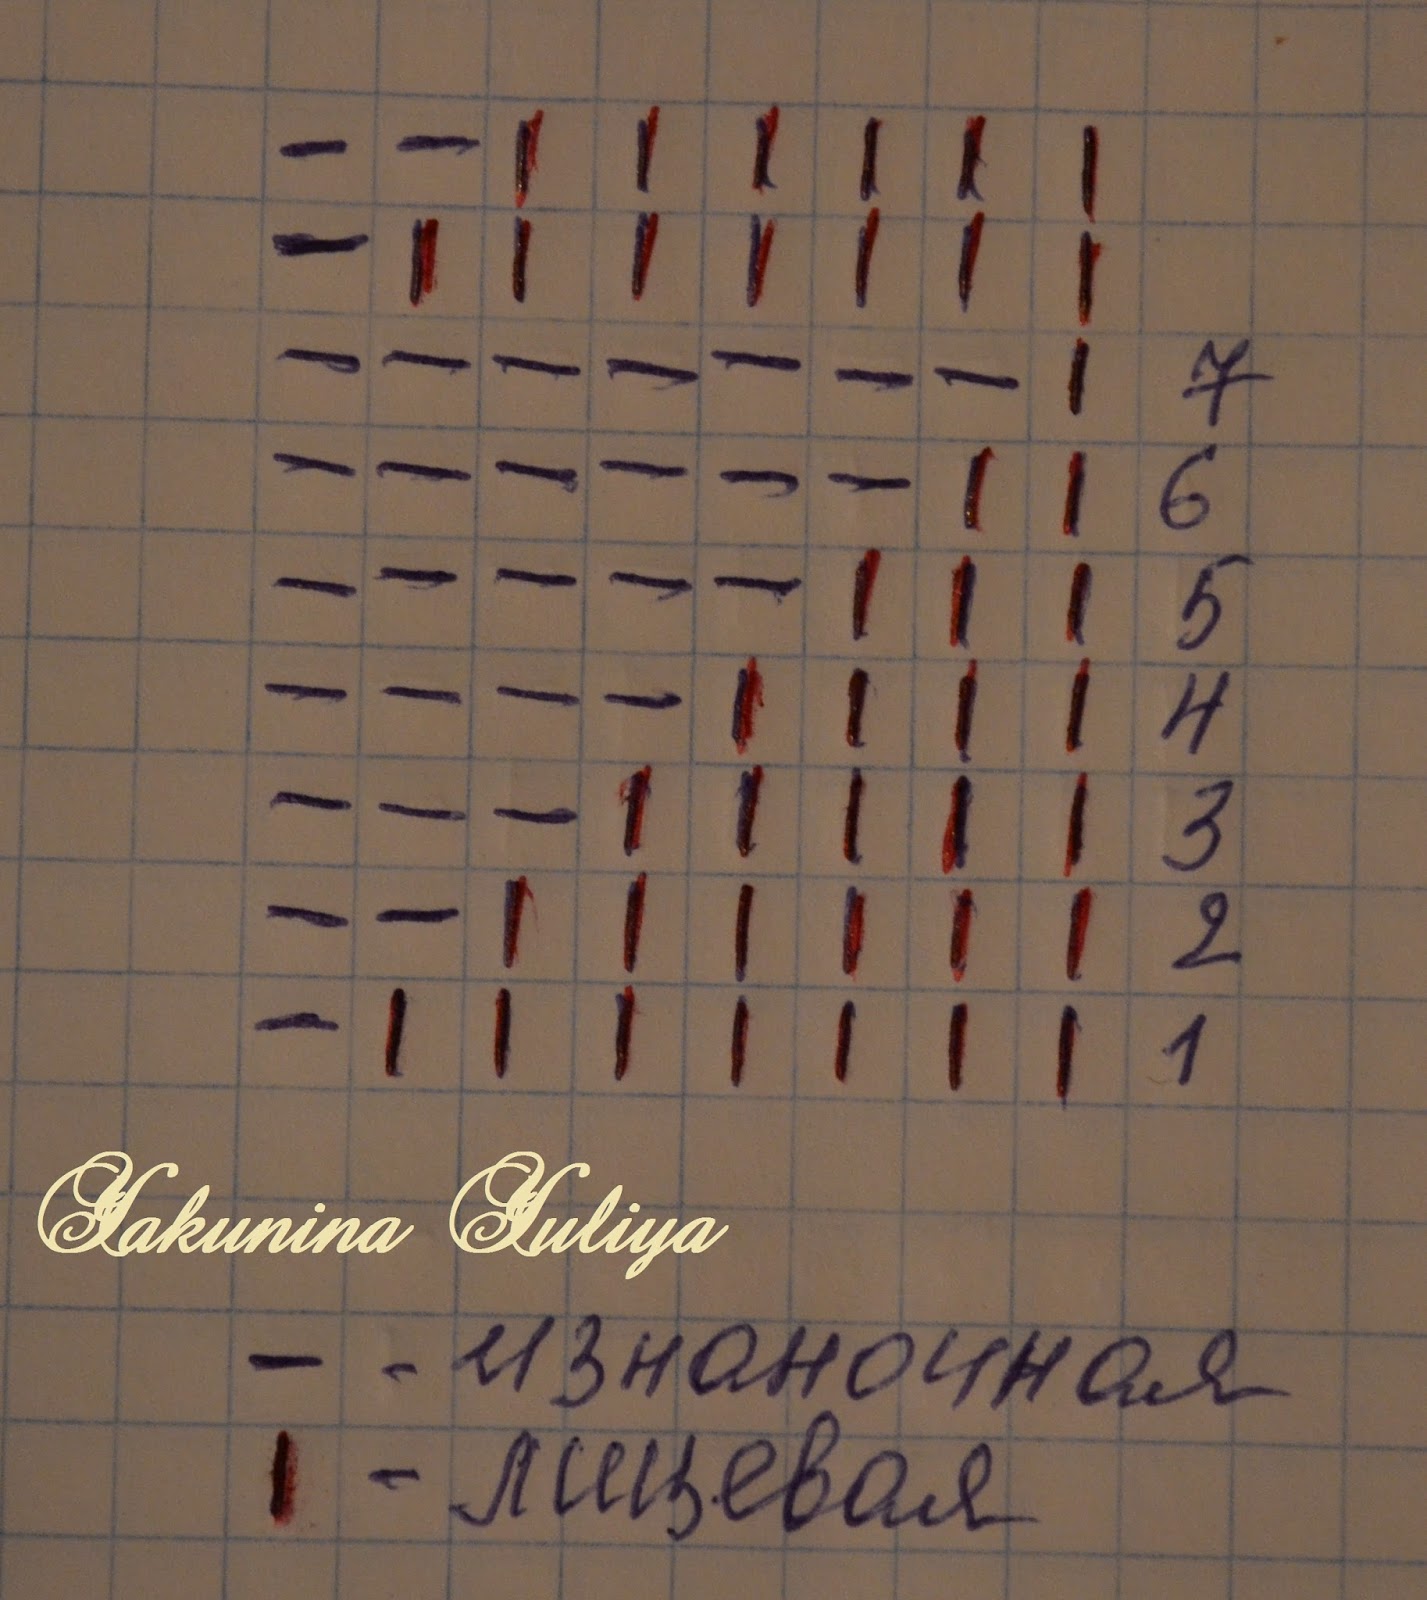 7
6
5
4
3
2
1
Yakunina Yuliya
— - изнаночная
| - лицевая